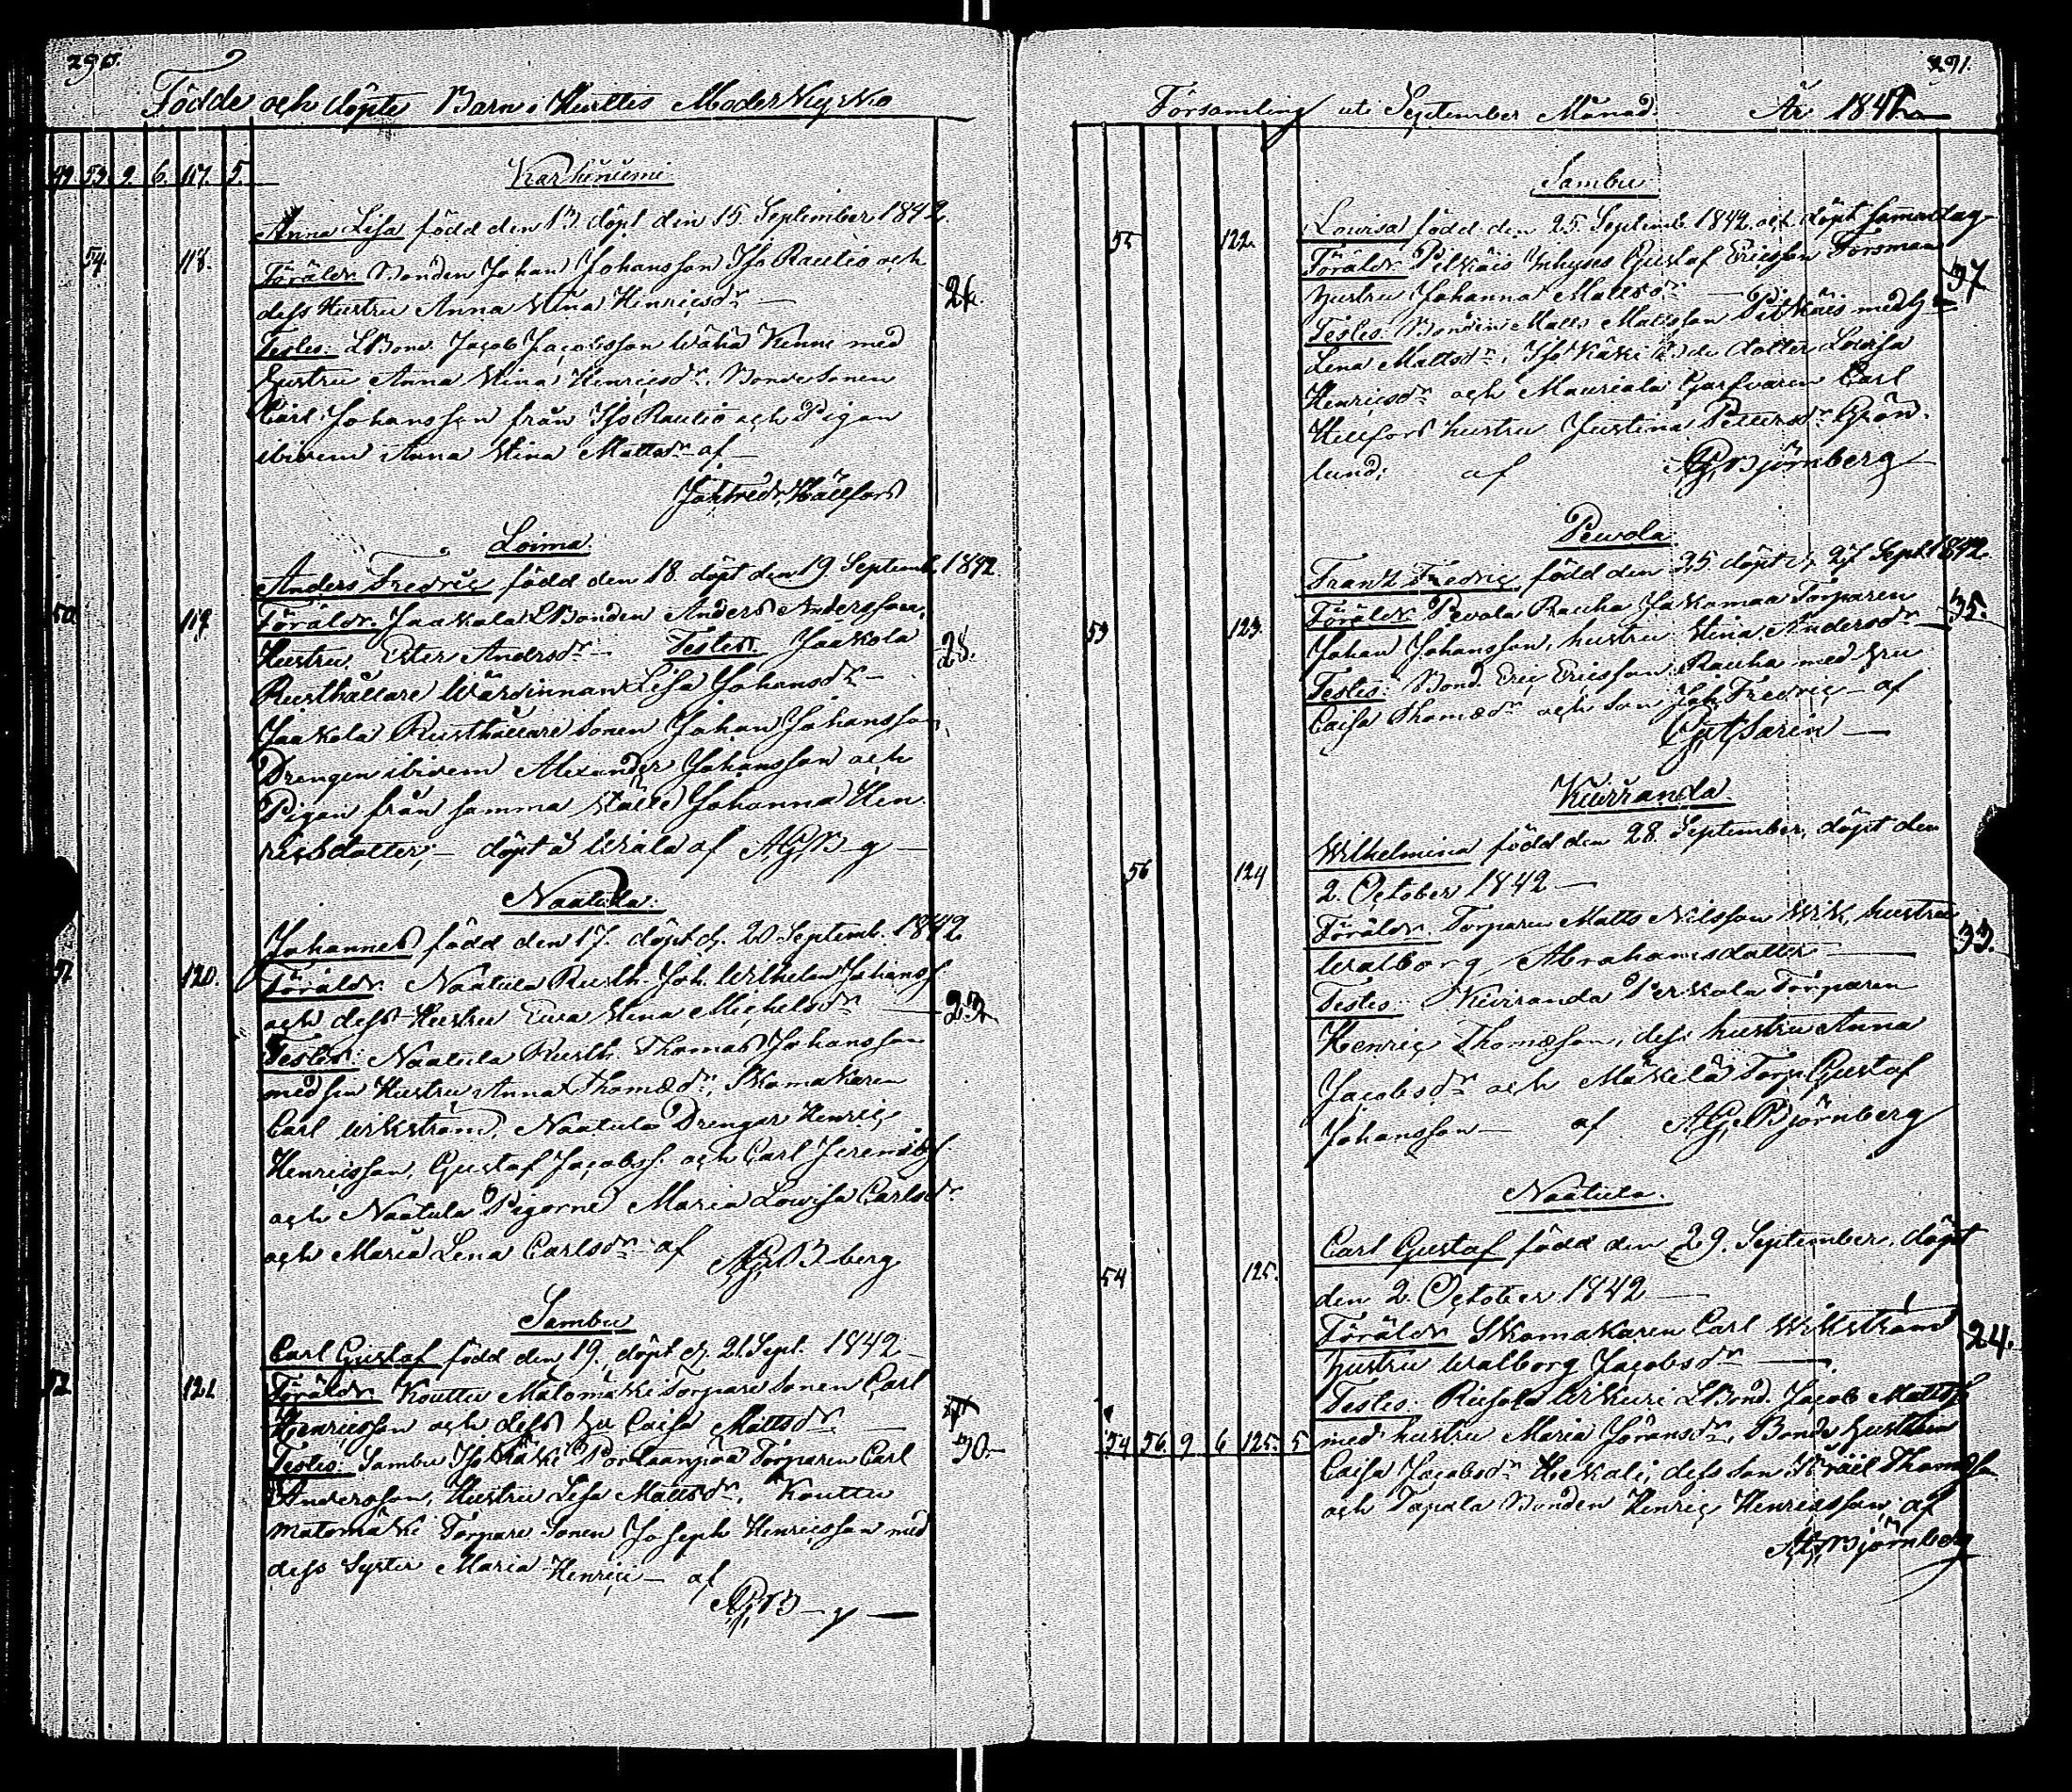 290.
Födde och döpte Barn i Huittis Moder Kyrko
49. 53. 9. 6. 117. 5.
Karhiniemi
Anna Lisa född den 13. döpt den 15 September 1842.
54. 118.
Föräldr. Bonden Johan Johansson Iso Rautio och
dess Hustru Anna Stina Henricsdr
26.
Testes: LBond. Jacob Jacobsson Wähä Kinni med
hustru Anna Stina Henricsdr. Bondesonen
Carl Johansson från Iso Rautio och Pigan
ibidem Anna Stina Mattsdr af
Joh Fredr. Hällfors
Loima
Anders Fredric född den 18. döpt den 19. Septemb. 1842
50 119.
Föräldr. Jaakola LBonden Anders Andersson,
Hustru Ester Andersdr — Testes. Jaakola
28.
Rusthållare Wärdinnan Lisa Johansdr —
Jaakola Rusthållare sonen Johan Johansson,
Drengen ibidem Alexander Johansson och
Pigan från samma ställe Johanna Hen
ricsdotter, — döpt af AGB—g —
Naatula.
Johannes född den 17. döpt d. 20 Septemb. 1842
51 120.
Föräldr. Naatula Rusth. Joh. Wilhelm Johanss.
och dess Hustru Ewa Stina Michelsdr
23
Testes: Naatula Rusth. Thomas Johansson
med sin Hustru Anna Thomædr, Skomakaren
Carl Wikström, Naatula Drengar Henric
Henricsson, Gustaf Jacobss. och Carl
och Naatula Pigorne Maria Lovisa Carlsdr
och Maria Lena Carlsdr — af AGB—berg
Sambu
Carl Gustaf född den 19. döpt d. 21. Sept. 1842 —
52 121
Föräldr. Kouttu Matomäki Torpare sonen Carl
Henricsson och dess hu Caisa Mattsdr.
30.
Testes: Sambu Iso Käki Torparen Carl
Andersson, Hustru Lisa Mattsdr, Kouttu
Matomäki Torpare Sonen Joseph Henricsson med
dess Syster Maria Henrici — af
AGB—g —
291.
Församling uti September Månad. År 1842
Sambu
Lovisa född den 25. Septemb. 1842. och döpt samma dag
55 122.
Föräldr. Pitkäis Inhyses Gustaf Ericsson Forsman
37
hustru Johanna Mattsdr
Testes. Bonden Matts Mattsson Pitkäis med
Lena Mattsdr, Iso Käki dotter Lovisa
Henricsdr och Mauriala Garfvaren Carl
Hellfors hustru Justina Pettersdr Grön
lund; af AGBjörnberg
Pewola
Frantz Fredric född den 25 döpt d. 27 Sept 1842
53 123.
Föräldr. Pevola Rauha Torparen
35.
Johan Johansson, hustru Stina Andersdr —
Testes: Bond. Eric Ericsson Rauha med hru
Caisa Thomædr och son Joh Fredric — af
Kiviranda
Wilhelmina född den 28. September, döpt den
56 124
2. October 1842 —
Föräldr. Torparen Matts Nilsson Wik, hustru
33.
Walborg Abrahamsdotter
Testes: Kiviranda Perkola Torparen
Henric Thomæson, dess hustru Anna
Jacobsdr och Mäkilä Torp. Gustaf
Johansson — af AG Björnberg
Naatula.
Carl Gustaf född den 29. September, döpt
54 125.
den 2. October 1842 —
Föräldr. Skomakaren Carl Wikström
24.
hustru Walborg Jacobsdr —
Testes: LBond. Jacob Mattss.
med hustru Maria Göransdr, Bonde hustrun
54 56. 9 6 125. 5
Caisa Jacobsdr dess son Thomæson
och Tapala Bonden Henric Henricsson af
AGBjörnberg